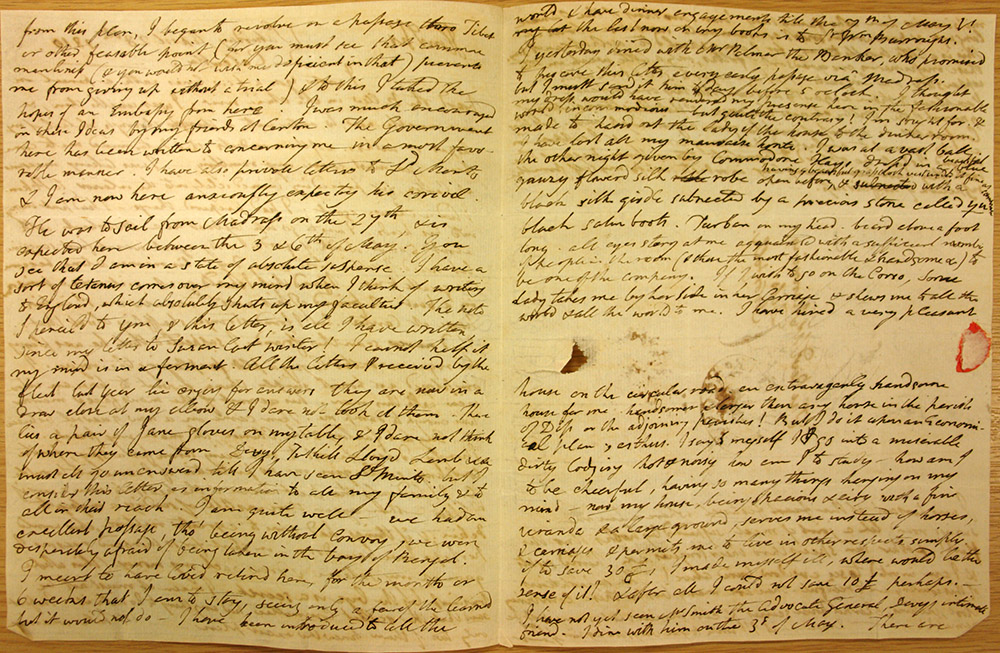 from this plan, I began to revolve on a passage thro Tibet
or other feasable point (for you must see that common
manliness (& you would not wish me deficient in that) prevents
me from giving up without a trial) & to this I tacked the
hopes of an Embassy from here. I was much encouraged
in these Ideas by my friends at Canton. The Government
here has been written to concerning me in a most favo-
rable manner I have also private letters to Ld Minto
& I am now here anxiously expecting his arrival.
He was to sail from Madrass on the 27th, & is
expected here between the 3 & 6th of May. You
see that I am in a state of absolute suspense. I have a
sort of tetanus comes over my mind when I think of writing
to England, which absolutely shuts up my faculties. The note
I pencil'd to you, & this letter, is all I have written
since my letter to Susan last winter! I cannot help it
my mind is in a ferment. All the letters I received by the
fleet last year lie crying for answers they are now in a
draw close at my elbow & I dare not look at them. There
lies a pair of Jane gloves on my table, & I dare not think
of where they came from Davy, Tuthill Lloyd Lamb &c &c
must all go unanswered till I have seen Ld Minto, but I
consider this letter as information to all my family & to
all in their reach. I am quite well - we had an
excellent passage, tho' being without convoy, we were
desperately afraid of being taken in the bay of Bengal.
I meant to have lived retired here, for the month or
6 weeks that I am to stay, seeing only a few of the learned
but it would not do - I have been introduced to all the
world & have dinner engagements till the 7th of May!!
at the last now on my books is to Sr Burroughs.
I yesterday dined with Mr Palmer the Banker, who promised
to preserve this letter every early passage via Madrass.
but I must send it him today before 5 o'clock. I thought
my dress would have rendered my presence here in the fashionable
world incommodious - but quite the contrary! I'm sought for &
made to hand out the lady of the house to the dinner room.
I have lost all my mauvaise honte. I was at a vast ball
the other night given by Commodore Hays drest in beautiful blue
gauzy flowerd silk robe open & with a
black silk girdle by a precious stone called yu
black satin boots. Turban on my head. beard above a foot
long. all eyes staring at me
people in the room (& then the most fashionable & handsome &c) to
be one of the company. If I wish to go on the Corso, some
Lady takes me by her side in her Carriage & shews me to all the
world & all the world to me. I have hired a very pleasant
house on the circular road, an extravagantly handsome
house for me, handsomer & larger than any house in the parish
of Diss or the adjoining parishes! But I do it upon an Economi-
cal plan, as thus. I say to myself If I go into a miserable
dirty lodging hot & noisy how am I to study - how am I
to be cheerful, having so many things hanging on my
mind - now my house, being spacious & airy with a fine
viranda & a large ground, serves me instead of horses,
& carriages & permits me to live in other respects simply
if to save 30 £, I made myself ill, where would be the
sense of it! & after all I could not save 10 £ perhaps. -
I have not yet seen Mr Smith the Advocate General, Davys intimate
friend. I dine with him on the 3d of May. There are